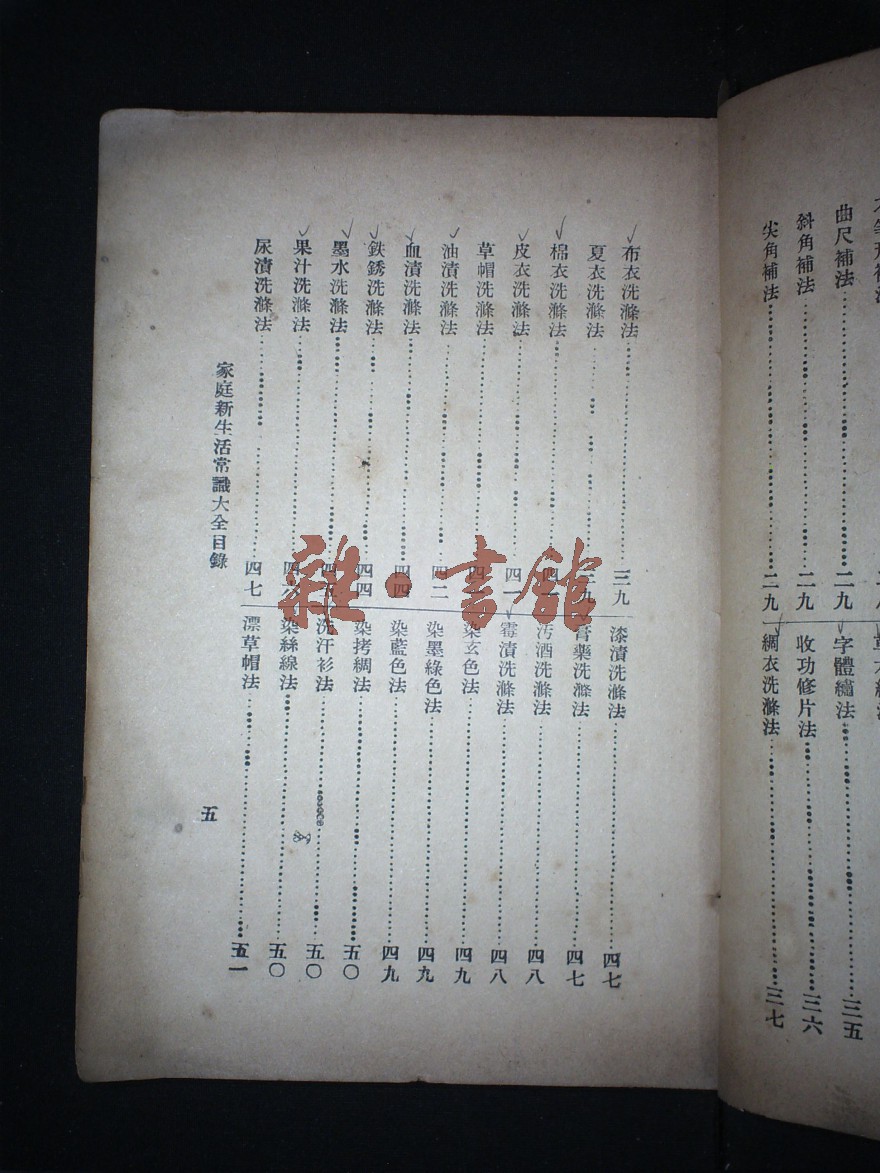 曲尺補法……二九
斜角補法……二九
尖角補法……二九
字體繡法……三五
收功修片法……三六
綢衣洗滌法……三七
布衣洗滌法……三九
夏衣洗滌法……三九
棉衣洗滌法……四
皮衣洗滌法……四一
草帽洗滌法……四
油漬洗滌法……四二
血漬洗滌法……四四
鉄銹洗滌法……四四
墨水洗滌法……四五
果汁洗滌法……四六
尿漬洗滌法……四七
漆漬洗滌法……四七
膏藥洗滌法……四七
汚酒洗滌法……四八
霉漬洗滌法……四八
染玄色法……四九
染墨綠色法……四九
染藍色法……四九
染拷綢法……五〇
洗汗衫法……五〇
染絲線法……五〇
漂草帽法……五一
家庭新生活常識大全目錄
五
雜·書館